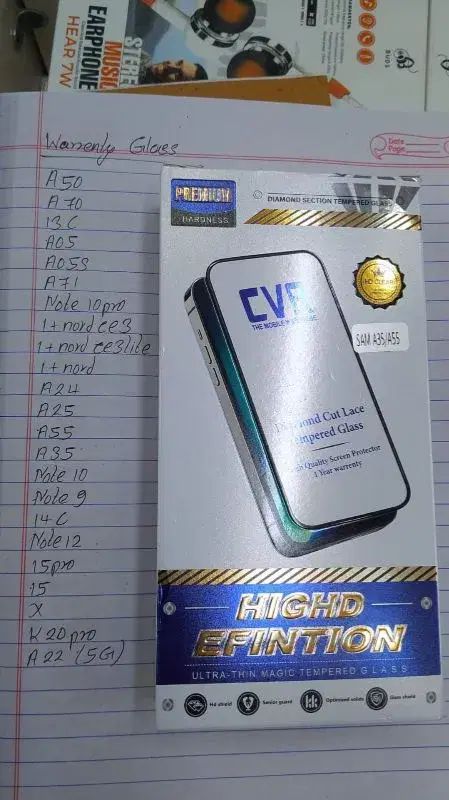 STEREO
MUSIC
EARPHONE
HEAR 7W
BUDS
Warrenty Glass
Date
Page
A50
A70
13 C
A05
A05S
A71
Note 10 pro
1+ nord ce3
1+ nord ce3 lite
1+ nord
A24
A25
A55
A35
Note 10
Note 9
14 C
Note 12
15 pro
15
X
K 20 pro
A 22 (5G)
PREMIUM
HARDNESS
DIAMOND SECTION TEMPERED GLASS
HD CLEAR
CVR
THE MOBILE
SAM A35/A55
Diamond Cut Lace
Tempered Glass
High Quality Screen Protector
1 Year warrenty
HIGHD
EFINTION
ULTRA-THIN MAGIC TEMPERED GLASS
Hd shield
Senior guard
Optimised solids
Glass shield